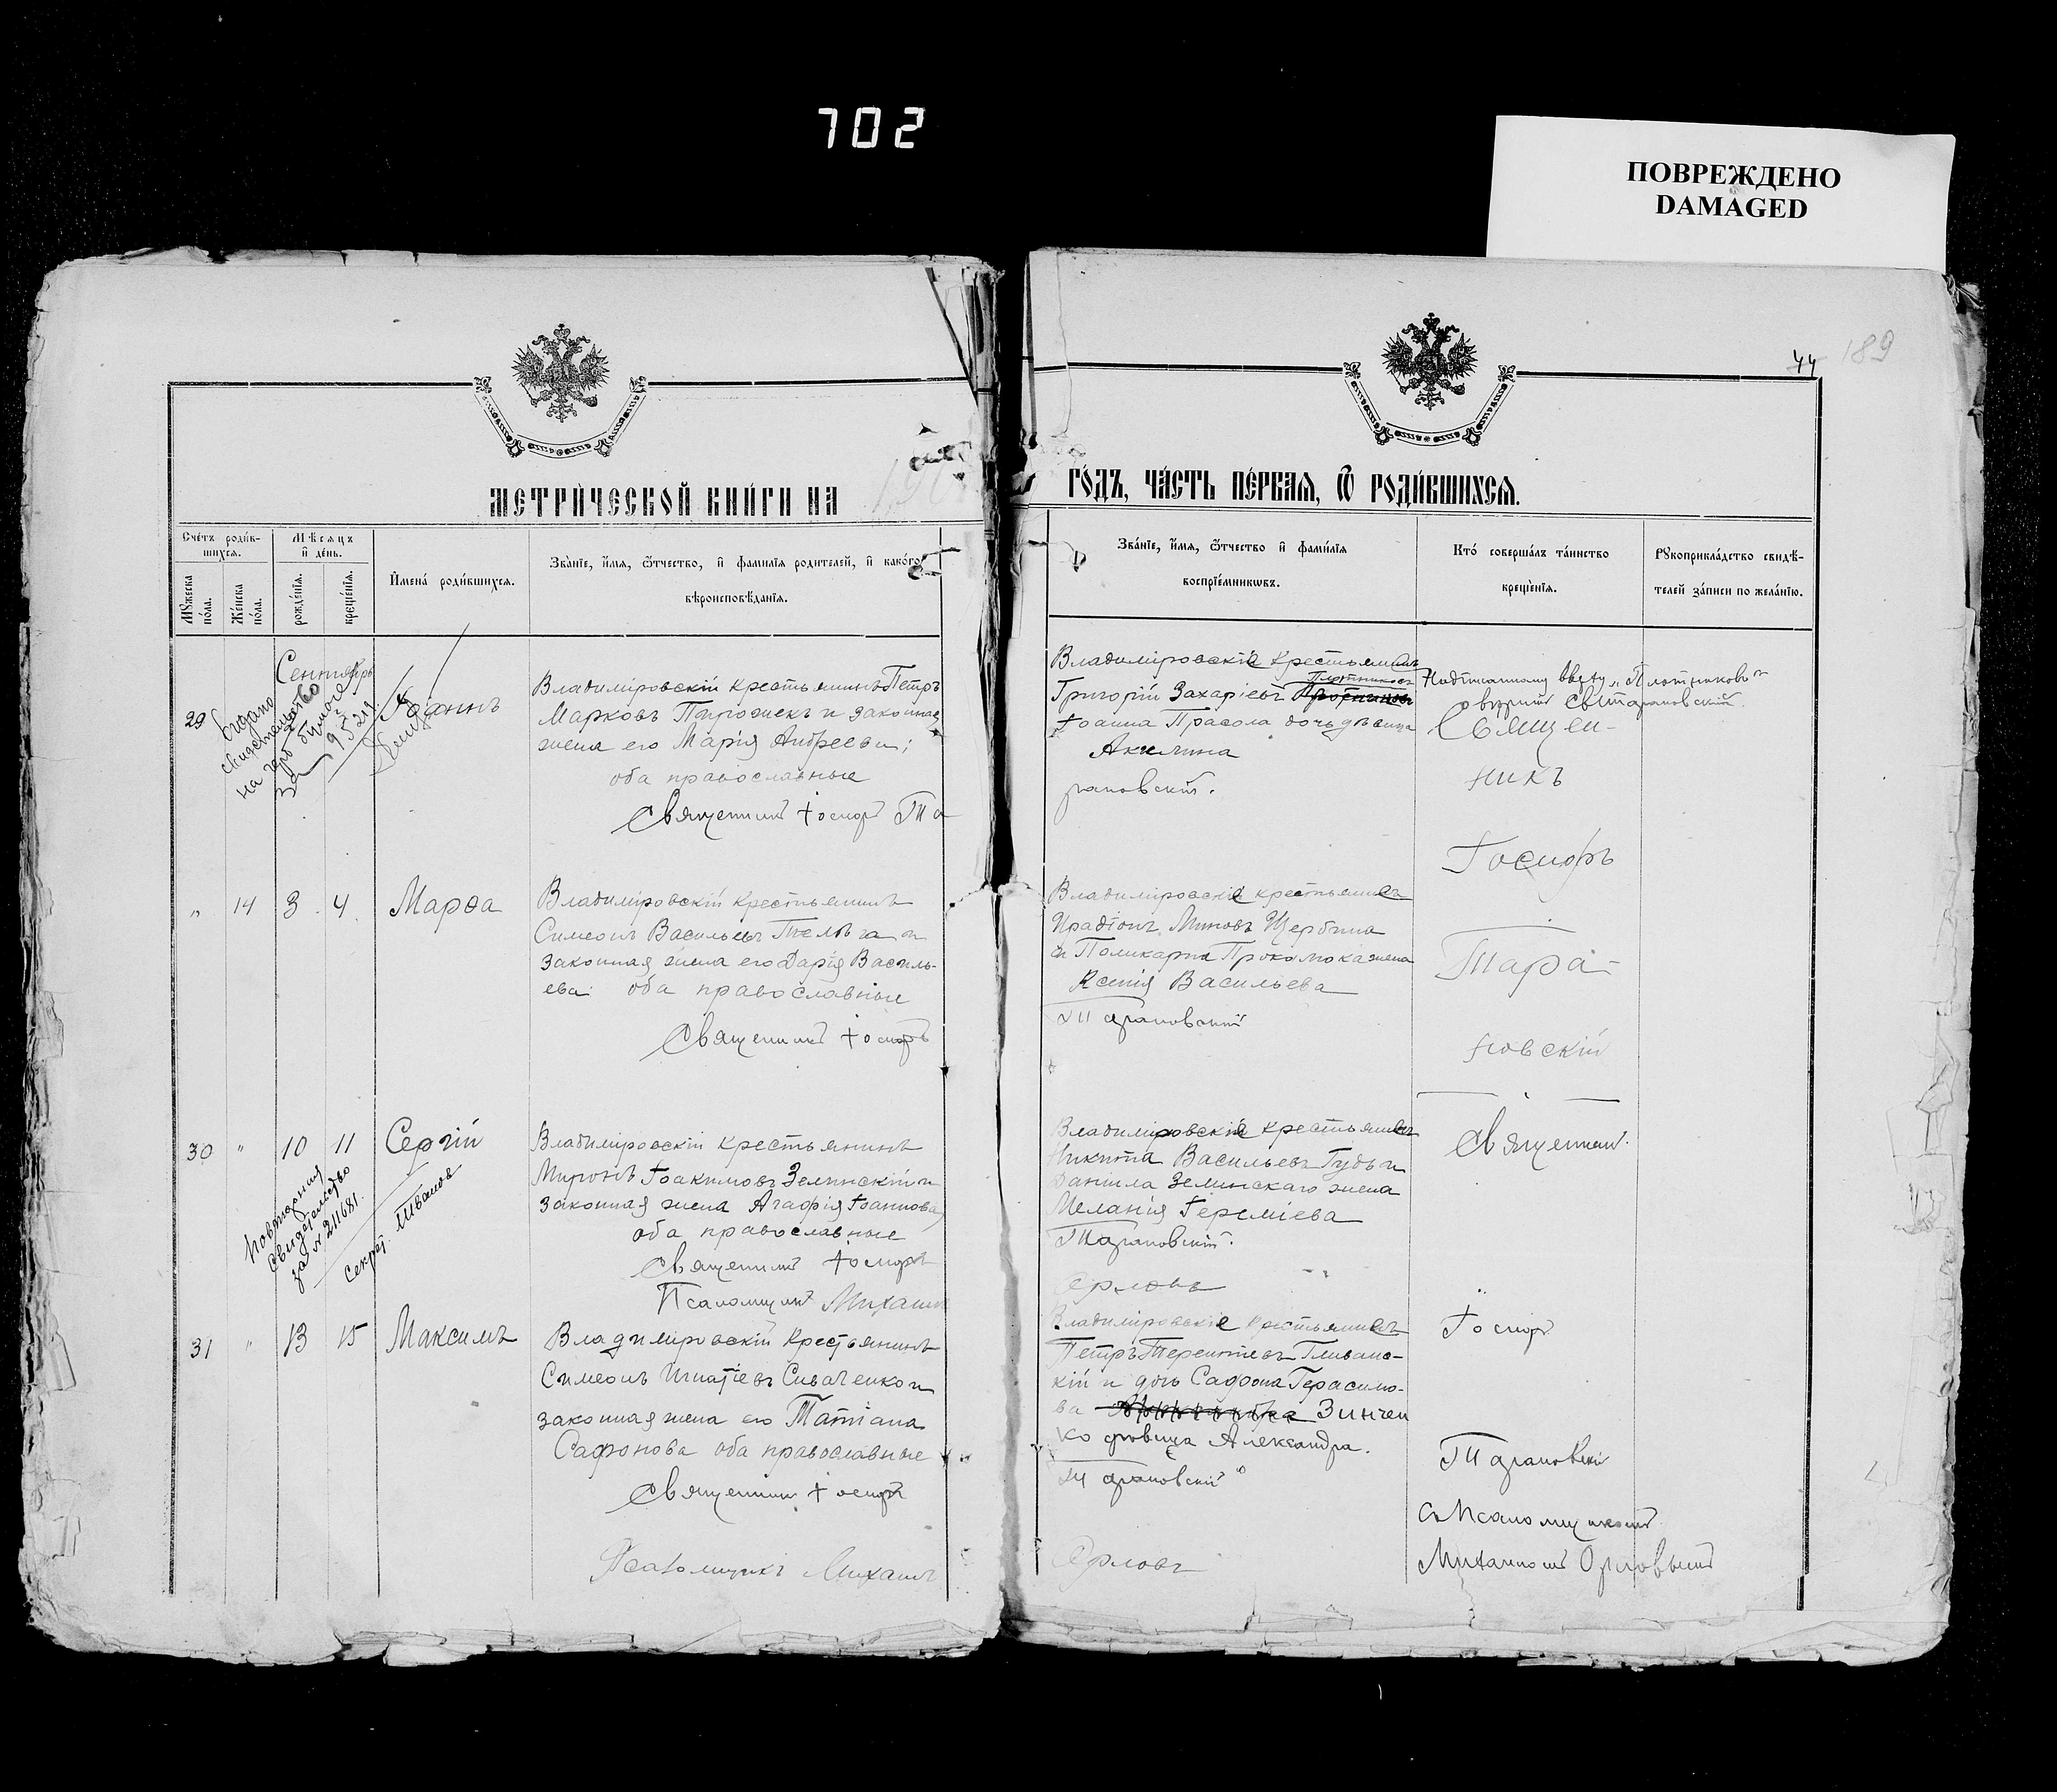 702
ПОВРЕЖДЕНО
DAMAGED
44 189
МЕТРИ́ЧЕСКОЙ КНИ́ГИ НА 19
ГО́ДЪ, ЧА́СТЬ ПЕ́РВАЯ, Ѿ РОДИ́ВШИХСЯ.
Счетъ роди́вшихся.
Му́жеска по́ла.
Же́нска по́ла.
Мѣсяцъ и де́нь.
рожде́нія.
креще́нія.
Имена́ роди́вшихся.
Зва́ніе, и́мя, ѻ́тчество, и фами́лія роди́телей, и како́го
вѣроисповѣ́данія.
Зва́ніе, и́мя, ѻ́тчество и фами́лія
воспріе́мниковъ.
Кто́ соверша́лъ та́инство
креще́нія.
Рукоприкла́дство свидѣ-
телей за́писи по жела́нію.
Сентябрь
29
Выдано
свидетельство
на герб бумаге
за
Іоаннъ
Владиміровскій крестьянинъ Петръ
Марковъ Пирожекъ и законная
жена его Марія Андреева;
оба православные
Священникъ Іосифъ Та
Владиміровскіе крестьяне
Плотниковъ
Григорій Захаріевъ
Іоанна Прасола дочь дѣвица
Акилина
рановскій.
Надписанному вверху „Плотниковъ“
вѣрить Св. Тарановскій.
Священ-
никъ
Іосифъ
Тара-
новскій
„ 14 3 4 Марѳа
Владиміровскій крестьянинъ
Симеонъ Васильевъ Телѣга и
законная жена его Дарія Василь-
ева оба православные
Священникъ Іосифъ
Владиміровскіе крестьяне
Ирадіонъ Миновъ Щербина
и Поликарпа Прокомока жена
Ксенія Васильева
Тарановскій
30 „ 10 11 Сергій
Повторения
свидетельство
за № 211681.
Секрет. Иванов
Владиміровскій крестьянинъ
Миронъ Іоакимовъ Зелинскій и
законная жена Агафія Іоаннова
оба православные
Священникъ Іосифъ
Псаломщикъ Михаилъ
Владиміровскіе крестьяне
Никита Васильевъ Гудь и
Даніила Зелинскаго жена
Меланія Іереміева
Тарановскій.
Орловъ
Священникъ
31 „ 13 15 Максимъ
Владиміровскій крестьянинъ
Симеонъ Игнатіевъ Сиваченко и
законная жена его Татіана
Сафонова оба православные
Священникъ Іосифъ
Псаломщикъ Михаилъ
Владиміровскіе крестьяне
Петръ Терентіевъ Гливанс-
кій и дочь Сафона Герасимо-
ва Зинчен
ко дѣвица Александра.
Тарановскій
Орловъ
Іосифъ
Тарановскій
съ Псаломщикомъ
Михаиломъ Орловымъ